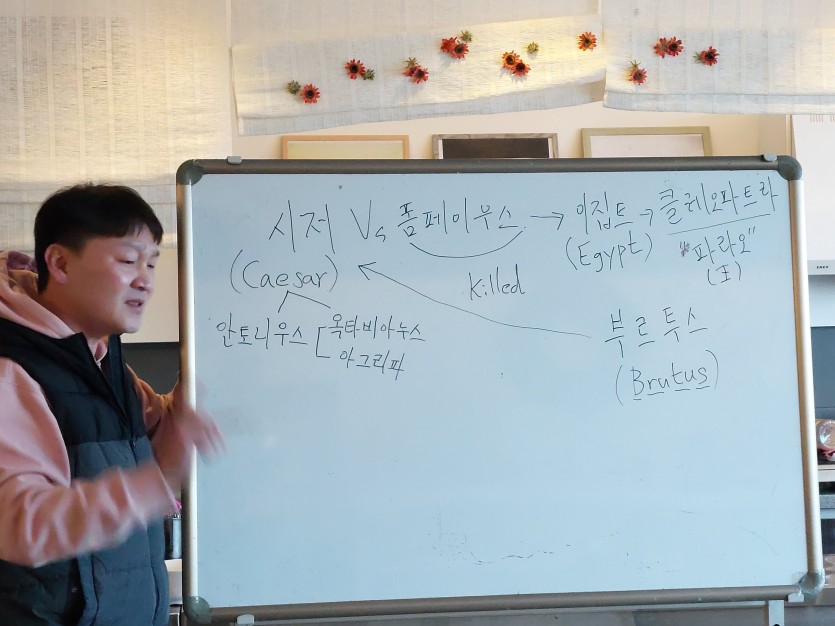 시저 Vs 폼페이우스 → 이집트 → 클레오파트라
(Caesar)
(Egypt)
"파라오"
(王)
killed
안토니우스
옥타비아누스
아그리파
부르투스
(Brutus)